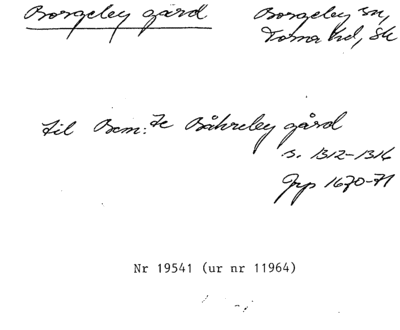 Borgeby gård
Borgeby sn,
Torna hd, Sk
till Bem: Je Båhreby gård
s. 1312-1316
Jrp 1670-71
Nr 19541 (ur nr 11964)